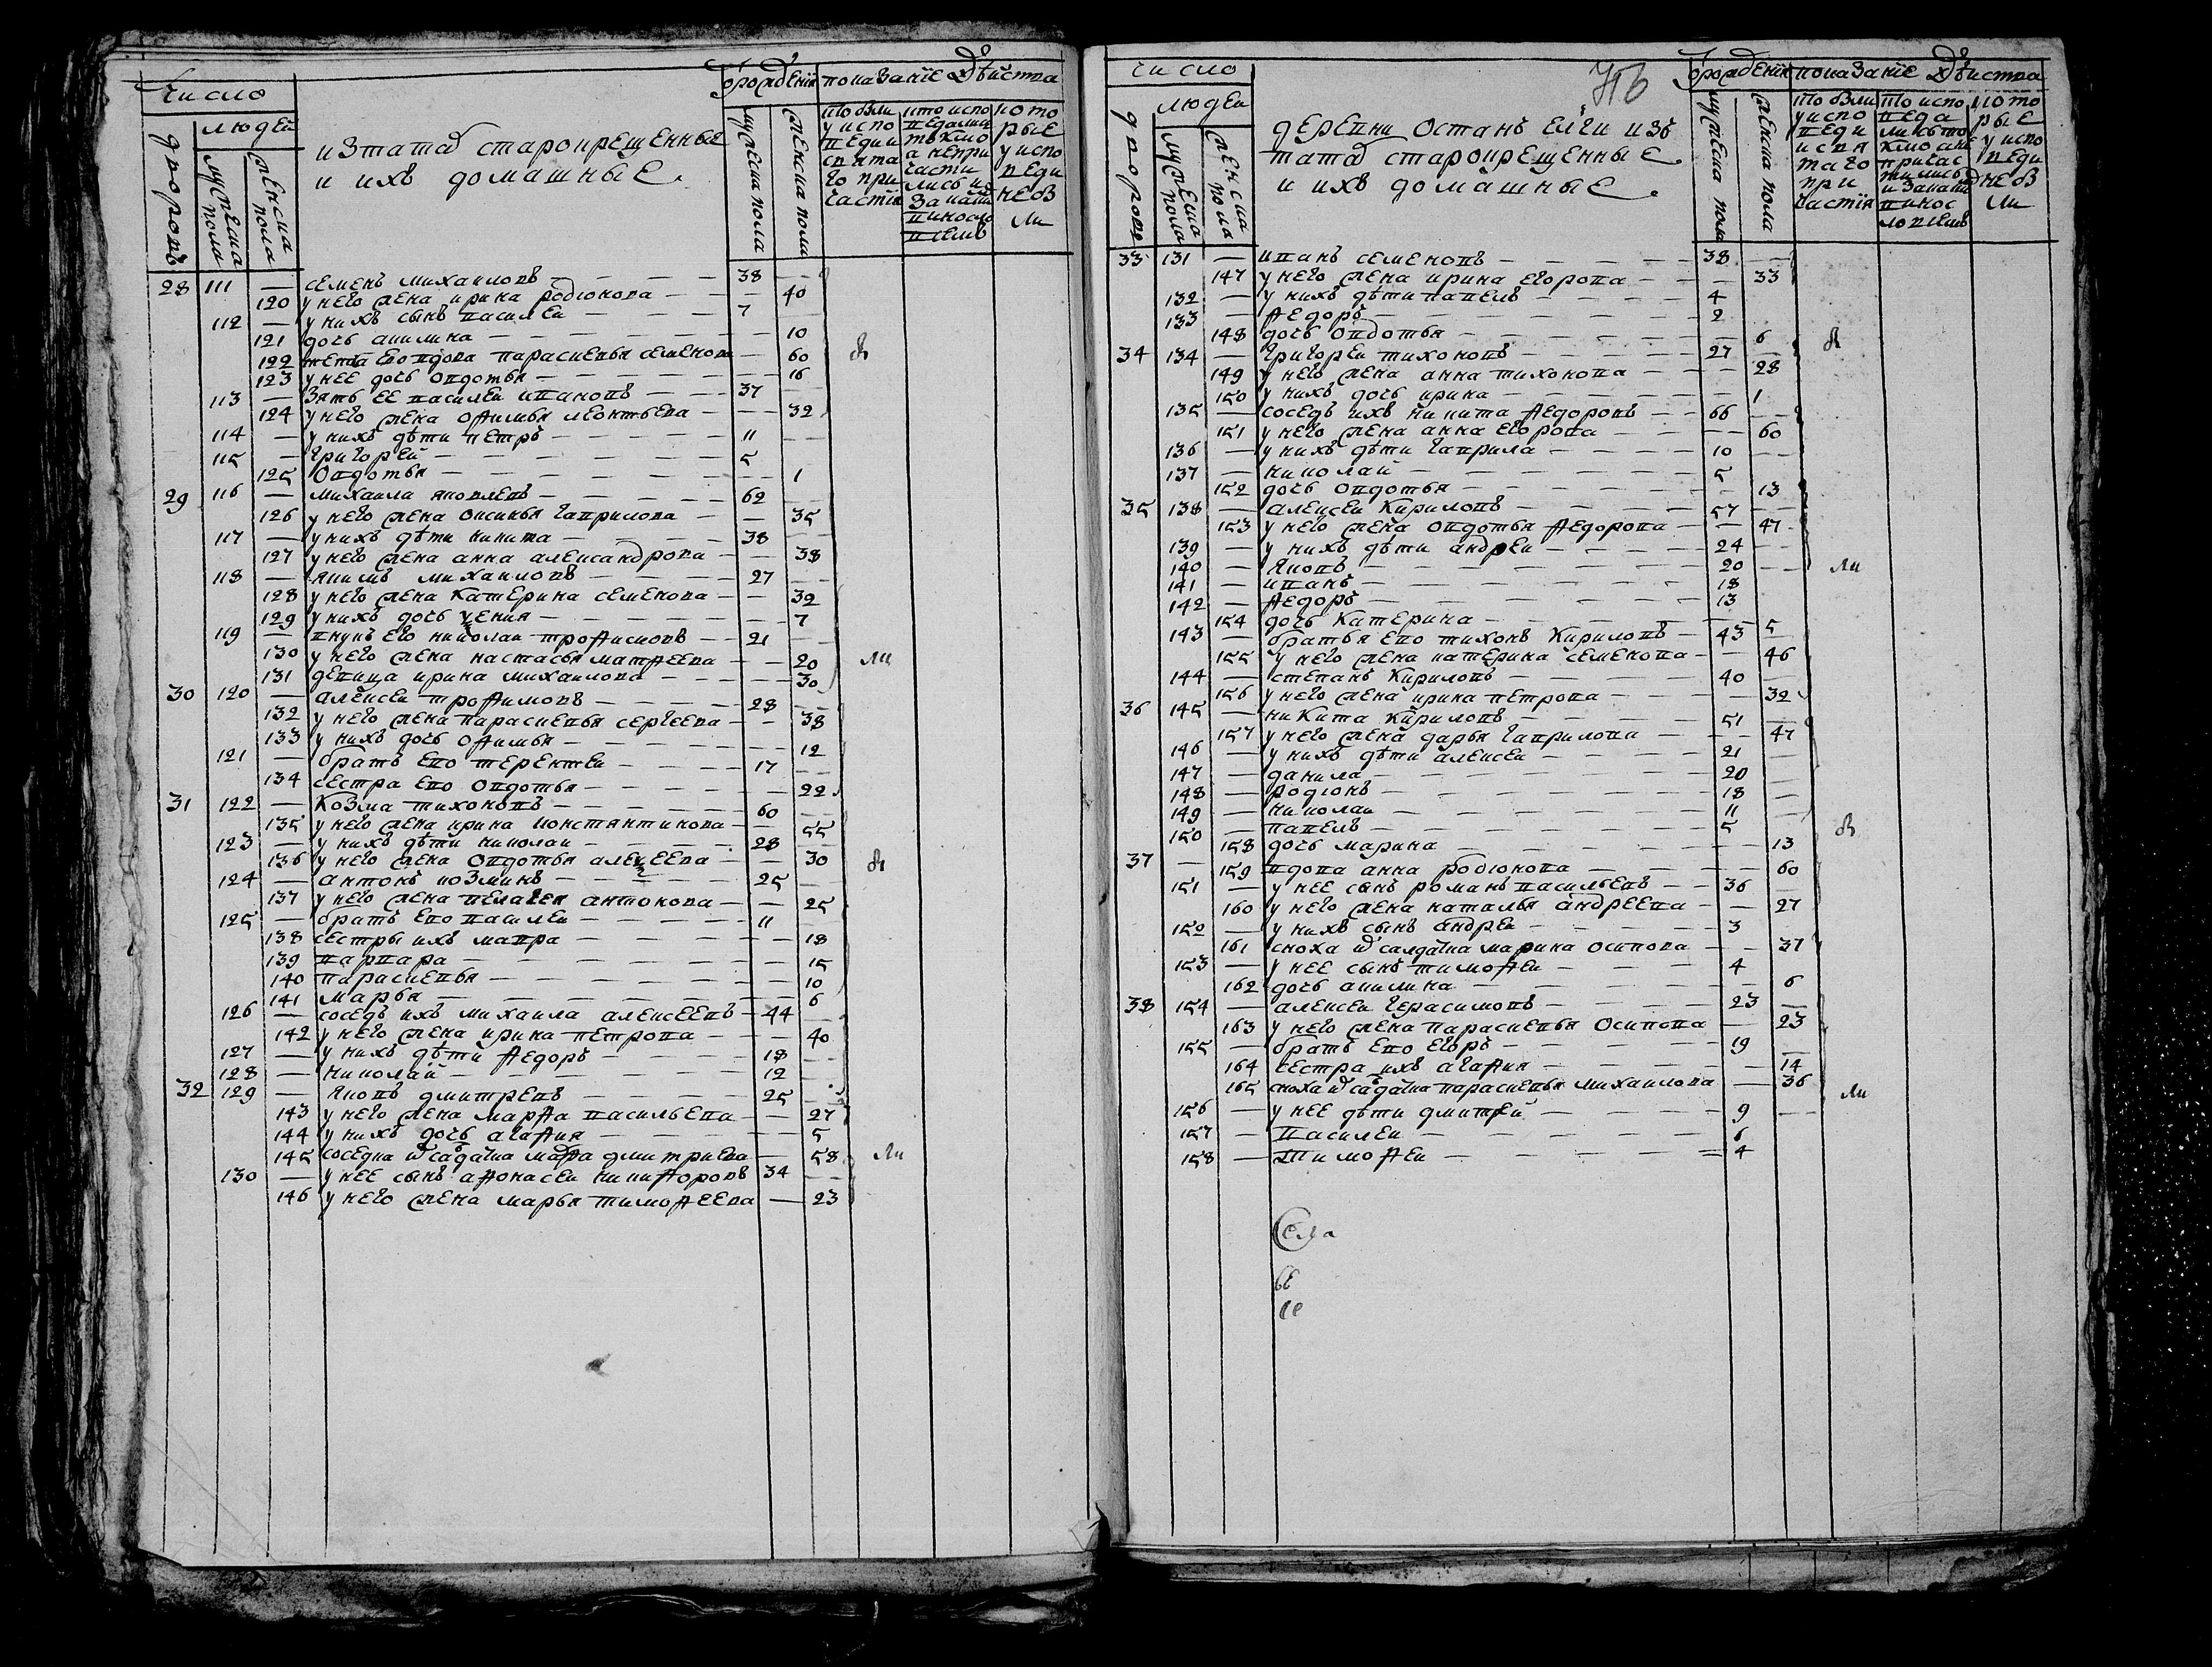 Число
людей
дворовъ
мужеска пола
женска пола
изтатаръ старокрещенные
и ихъ домашные
отрождения
мужеска пола
женска пола
показание действа
кто были у исповеди и святаго причастия
кто исповедались токмо а непричастились и за каким винословием
которые у исповеди не были
28 111 — семенъ михаиловъ — 38 —
120 у него жена ирина родионова — 40
112 — у нихъ сынъ василеи — 7
121 дочь акилина — 10
122 вдова парасковья семенова — 60
123 у нее дочь овдотья — 16
113 — зять ее василеи ивановъ — 37 —
124 у него жена офимья леонтьева — 32
114 — у нихъ дѣти петръ — 11 —
115 — григорей — 5
125 овдотья — 1
29 116 — михаила яковлевъ — 62 —
126 у него жена оксинья гаврилова — 35
117 — у нихъ дѣти никита — 38 —
127 у него жена анна александрова — 38
118 — якимъ михаиловъ — 27 —
128 у него жена катерина семенова — 32
129 у нихъ дочь — 7
119 — внукъ его николаи трофимовъ — 21 —
130 у него жена настасья матфеева — 20
131 девица ирина михаилова — 30
30 120 — алексеи трофимовъ — 28 —
132 у него жена парасковья сергеева — 38
133 у нихъ дочь офимья — 12
121 — братъ ево терентеи — 17 —
134 сестра ево овдотья — 22
31 122 — козма тихоновъ — 60 —
135 у него жена ирина констянтинова — 55
123 — у нихъ дѣти николаи — 28 —
136 у него жена овдотья алексеева — 30
124 — антонъ козминъ — 25 —
137 у него жена пелагея антонова — 25
125 — братъ ево василеи — 11 —
138 сестры ихъ мавра — 18
139 варвара — 15
140 парасковья — 10
141 марья — 6
126 — соседъ ихъ михаила алексеевъ — 44 —
142 у него жена ирина петрова — 40
127 — у нихъ дѣти федоръ — 18 —
128 — николай — 12 —
32 129 — яковъ дмитревъ — 25 —
143 у него жена марфа васильева — 27
144 у нихъ дочь агафия — 5
145 соседка салдатка марфа дмитриева — 58
130 — у нее сынъ афонасеи никифоровъ 34 —
146 у него жена марья тимофеева — 23
бы
ли
бы
ли
число
людеи
дворовъ
мужеска пола
женска пола
деревни останъ елги изъ
татаръ старокрещенные
и ихъ домашные
отрождения
мужеска пола
женска пола
показание действа
кто были у исповеди и святаго причастия
кто исповедались токмо а не причастились и за каким винословиемъ
которые у исповеди не были
33 131 — иванъ семеновъ — 38 —
147 у него жена ирина егорова — 33
132 — у нихъ дѣти павелъ — 4
133 — федоръ — 2
148 дочь овдотья — 6
34 134 — григореи тихоновъ — 27 —
149 у него жена анна тихонова — 28
150 у нихъ дочь ирина — 1
135 — соседъ ихъ никита федоровъ — 66 —
151 у него жена анна егорова — 60
136 — у нихъ дѣти гаврила — 10 —
137 — николай — 5
152 дочь овдотья — 13
35 138 — алексеи кириловъ — 57 —
153 у него жена овдотья федорова — 47
139 — у нихъ дѣти андреи — 24 —
140 — яковъ — 20 —
141 — иванъ — 18
142 — федоръ — 13
154 дочь катерина — 5
143 — братья ево тихонъ кириловъ — 43 —
155 у него жена катерина семенова — 46
144 — степанъ кириловъ — 40 —
156 у него жена ирина петрова — 32
36 145 — никита кириловъ — 51 —
157 у него жена дарья гаврилова — 47
146 — у нихъ дѣти алексеи — 21 —
147 — данила — 20 —
148 — родионъ — 18 —
149 — николаи — 11 —
150 — павелъ — 5
158 дочь марина — 13
37 — 159 вдова анна родионова — 60
151 — у нее сынъ романъ васильевъ — 36 —
160 у него жена наталья андреева — 27
152 — у нихъ сынъ андреи — 3
161 сноха салдатка марина осипова — 37
153 — у нее сынъ тимофеи — 4
162 дочь акилина — 6
38 154 — алексеи герасимовъ — 23 —
163 у него жена парасковья осипова — 23
155 — братъ ево егоръ — 19 —
164 сестра ихъ агафия — 14
165 сноха салдатка парасковья михаилова — 36
156 — у нее дѣти дмитрей — 9 —
157 — василеи — 6
158 — тимофеи — 4
бы
ли
бы
ли
села